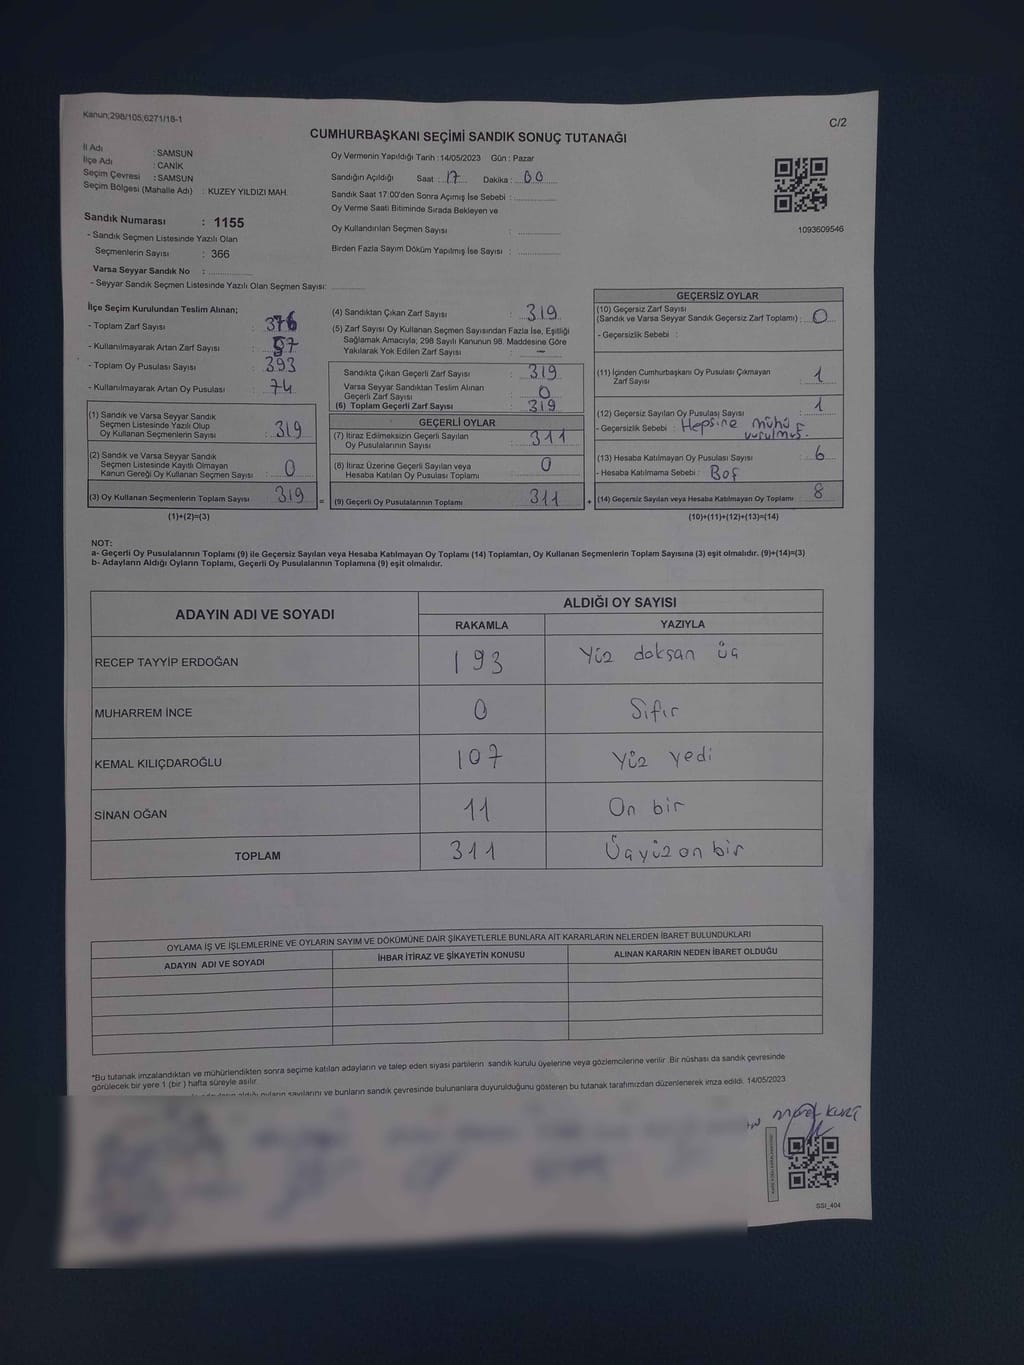 Kanun;298/105,6271/18-1
C/2
CUMHURBAŞKANI SEÇİMİ SANDIK SONUÇ TUTANAĞI
İl Adı : SAMSUN
İlçe Adı : CANİK
Seçim Çevresi : SAMSUN
Seçim Bölgesi (Mahalle Adı) : KUZEY YILDIZI MAH.
Sandık Numarası : 1155
- Sandık Seçmen Listesinde Yazılı Olan
Seçmenlerin Sayısı : 366
Varsa Seyyar Sandık No : ..............
- Seyyar Sandık Seçmen Listesinde Yazılı Olan Seçmen Sayısı: ............
Oy Vermenin Yapıldığı Tarih :14/05/2023 Gün : Pazar
Sandığın Açıldığı Saat : 17 Dakika : 00
Sandık Saat 17:00'den Sonra Açımış İse Sebebi : ............
Oy Verme Saati Bitiminde Sırada Bekleyen ve
Oy Kullandırılan Seçmen Sayısı : ............
Birden Fazla Sayım Döküm Yapılmış İse Sayısı : ............
1093609546
İlçe Seçim Kurulundan Teslim Alınan;
- Toplam Zarf Sayısı : 376
- Kullanılmayarak Artan Zarf Sayısı : 57
- Toplam Oy Pusulası Sayısı : 393
- Kullanılmayarak Artan Oy Pusulası : 74
(1) Sandık ve Varsa Seyyar Sandık
Seçmen Listesinde Yazılı Olup
Oy Kullanan Seçmenlerin Sayısı : 319
(2) Sandık ve Varsa Seyyar Sandık
Seçmen Listesinde Kayıtlı Olmayan
Kanun Gereği Oy Kullanan Seçmen Sayısı : 0
(3) Oy Kullanan Seçmenlerin Toplam Sayısı : 319
(1)+(2)=(3)
(4) Sandıktan Çıkan Zarf Sayısı : 319
(5) Zarf Sayısı Oy Kullanan Seçmen Sayısından Fazla İse, Eşitliği
Sağlamak Amacıyla; 298 Sayılı Kanunun 98. Maddesine Göre
Yakılarak Yok Edilen Zarf Sayısı : –
Sandıkta Çıkan Geçerli Zarf Sayısı : 319
Varsa Seyyar Sandıktan Teslim Alınan
Geçerli Zarf Sayısı : 0
(6) Toplam Geçerli Zarf Sayısı : 319
GEÇERLİ OYLAR
(7) İtiraz Edilmeksizin Geçerli Sayılan
Oy Pusulalarının Sayısı : 311
(8) İtiraz Üzerine Geçerli Sayılan veya
Hesaba Katılan Oy Pusulası Toplamı : 0
= (9) Geçerli Oy Pusulalarının Toplamı : 311
GEÇERSİZ OYLAR
(10) Geçersiz Zarf Sayısı
(Sandık ve Varsa Seyyar Sandık Geçersiz Zarf Toplamı) : 0
- Geçersizlik Sebebi :
(11) İçinden Cumhurbaşkanı Oy Pusulası Çıkmayan
Zarf Sayısı : 1
(12) Geçersiz Sayılan Oy Pusulası Sayısı : 1
- Geçersizlik Sebebi : Hepsine mühür
vurulmuş.
(13) Hesaba Katılmayan Oy Pusulası Sayısı : 6
- Hesaba Katılmama Sebebi : Boş
+ (14) Geçersiz Sayılan veya Hesaba Katılmayan Oy Toplamı : 8
(10)+(11)+(12)+(13)=(14)
NOT:
a- Geçerli Oy Pusulalarının Toplamı (9) ile Geçersiz Sayılan veya Hesaba Katılmayan Oy Toplamı (14) Toplamları, Oy Kullanan Seçmenlerin Toplam Sayısına (3) eşit olmalıdır. (9)+(14)=(3)
b- Adayların Aldığı Oyların Toplamı, Geçerli Oy Pusulalarının Toplamına (9) eşit olmalıdır.
ADAYIN ADI VE SOYADI ALDIĞI OY SAYISI
RAKAMLA YAZIYLA
RECEP TAYYİP ERDOĞAN 193 Yüz doksan üç
MUHARREM İNCE 0 Sıfır
KEMAL KILIÇDAROĞLU 107 Yüz yedi
SİNAN OĞAN 11 On bir
TOPLAM 311 Üçyüz on bir
OYLAMA İŞ VE İŞLEMLERİNE VE OYLARIN SAYIM VE DÖKÜMÜNE DAİR ŞİKAYETLERLE BUNLARA AİT KARARLARIN NELERDEN İBARET BULUNDUKLARI
ADAYIN ADI VE SOYADI İHBAR İTİRAZ VE ŞİKAYETİN KONUSU ALINAN KARARIN NEDEN İBARET OLDUĞU
*Bu tutanak imzalandıktan ve mühürlendikten sonra seçime katılan adayların ve talep eden siyasi partilerin sandık kurulu üyelerine veya gözlemcilerine verilir. Bir nüshası da sandık çevresinde
görülecek bir yere 1 (bir) hafta süreyle asılır.
sayılarını ve bunların sandık çevresinde bulunanlara duyurulduğunu gösteren bu tutanak tarafımızdan düzenlenerek imza edildi. 14/05/2023
SSI_404